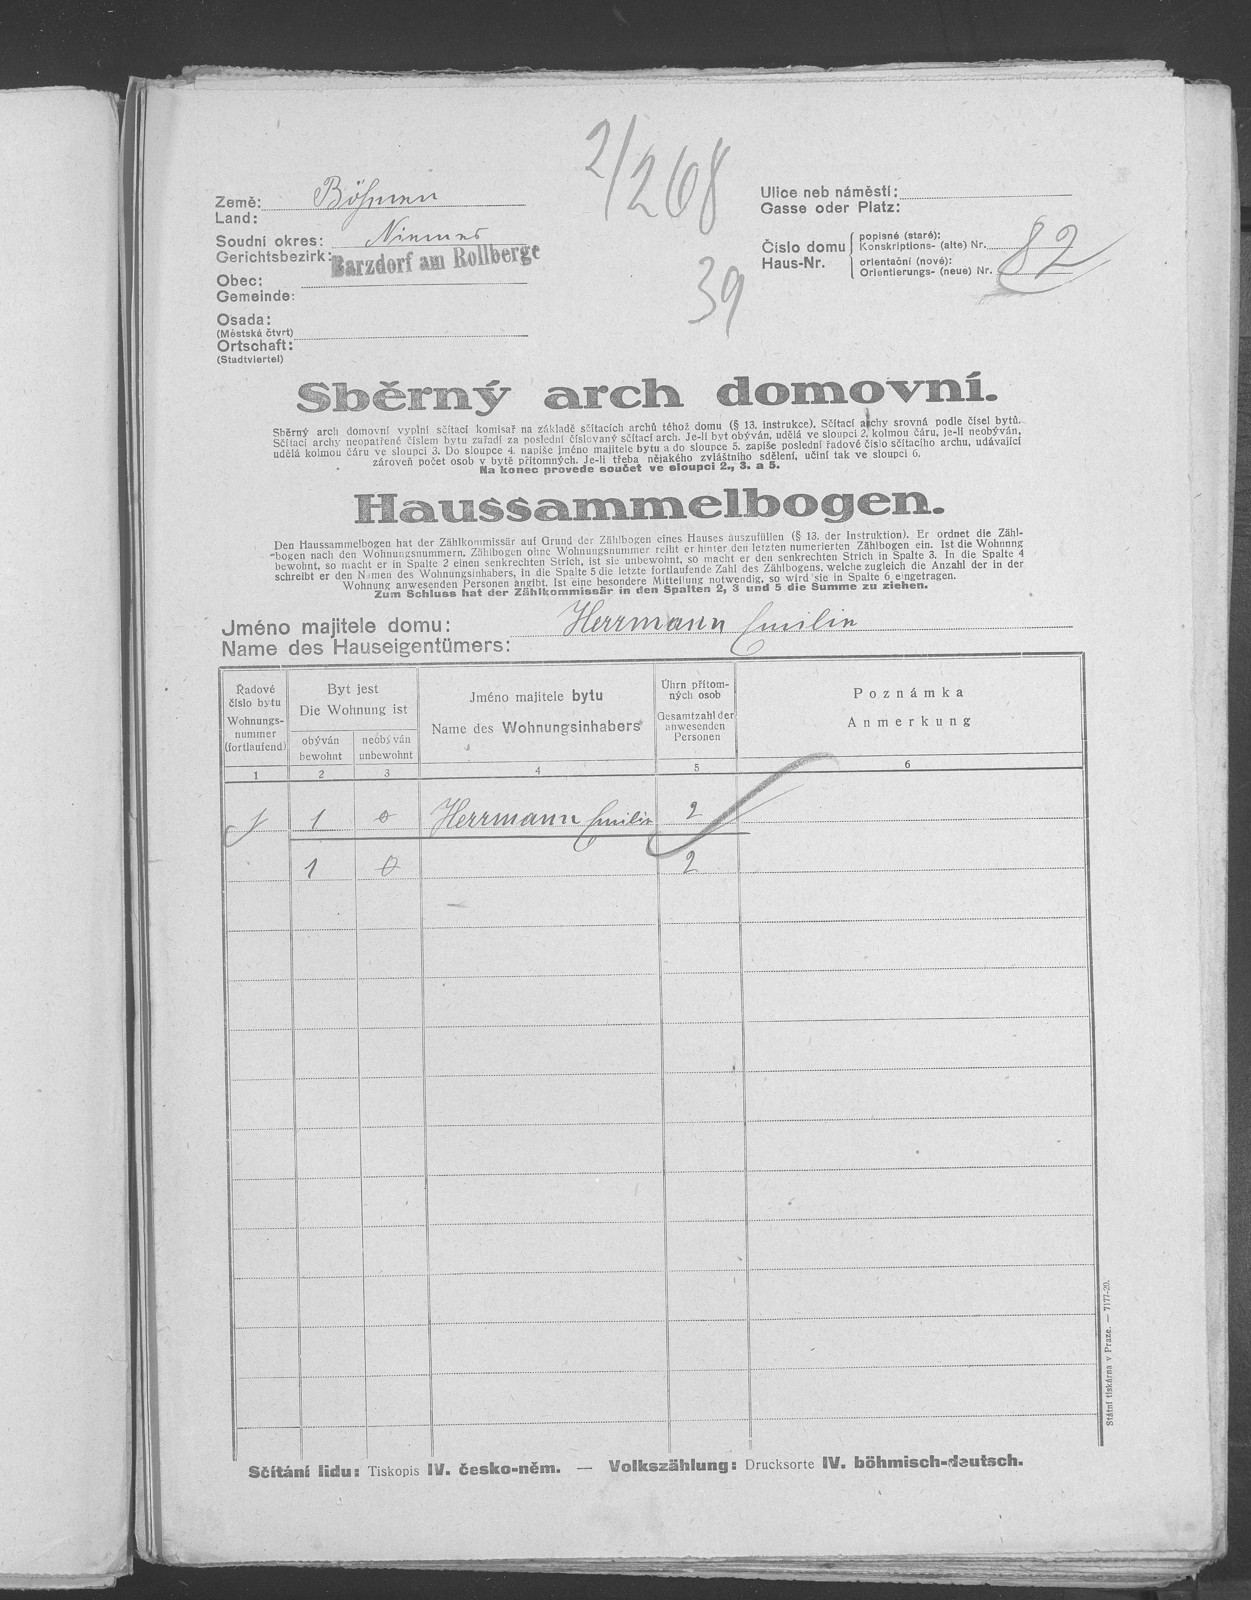 2/268
39
Země: Böhmen
Land:
Soudní okres: Niemes
Gerichtsbezirk:
Barzdorf am Rollberge
Obec:
Gemeinde:
Osada:
(Městská čtvrt)
Ortschaft:
(Stadtviertel)
Ulice neb náměstí:
Gasse oder Platz:
Číslo domu
Haus-Nr.
popisné (staré):
Konskriptions- (alte) Nr.
orientační (nové):
Orientierungs- (neue) Nr.
82
Sběrný arch domovní.
Sběrný arch domovní vyplní sčítací komisař na základě sčítacích archů téhož domu (§ 13. instrukce). Sčítací archy srovná podle čísel bytů.
Sčítací archy neopatřené číslem bytu zařadí za poslední číslovaný sčítací arch. Je-li byt obýván, udělá ve sloupci 2. kolmou čáru, je-li neobýván,
udělá kolmou čáru ve sloupci 3. Do sloupce 4. napíše jméno majitele bytu a do sloupce 5. zapíše poslední řadové číslo sčítacího archu, udávající
zároveň počet osob v bytě přítomných. Je-li třeba nějakého zvláštního sdělení, učiní tak ve sloupci 6.
Na konec provede součet ve sloupci 2., 3. a 5.
Haussammelbogen.
Den Haussammelbogen hat der Zählkommissär auf Grund der Zählbogen eines Hauses auszufüllen (§ 13. der Instruktion). Er ordnet die Zähl-
bogen nach den Wohnungsnummern. Zählbogen ohne Wohnungsnummer reiht er hinter den letzten numerierten Zählbogen ein. Ist die Wohnung
bewohnt, so macht er in Spalte 2 einen senkrechten Strich, ist sie unbewohnt, so macht er den senkrechten Strich in Spalte 3. In die Spalte 4
schreibt er den Namen des Wohnungsinhabers, in die Spalte 5 die letzte fortlaufende Zahl des Zählbogens, welche zugleich die Anzahl der in der
Wohnung anwesenden Personen angibt. Ist eine besondere Mitteilung notwendig, so wird sie in Spalte 6 eingetragen.
Zum Schluss hat der Zählkommissär in den Spalten 2, 3 und 5 die Summe zu ziehen.
Jméno majitele domu: Herrmann Emilie
Name des Hauseigentümers:
Řadové
číslo bytu
Wohnungs-
nummer
(fortlaufend)
Byt jest
Die Wohnung ist
obýván
bewohnt
neobýván
unbewohnt
Jméno majitele bytu
Name des Wohnungsinhabers
Úhrn přítom-
ných osob
Gesamtzahl der
anwesenden
Personen
Poznámka
Anmerkung
1 2 3 4 5 6
1 1 0 Herrmann Emilie 2
1 0 2
Státní tiskárna v Praze. — 7177-20.
Sčítání lidu: Tiskopis IV. česko-něm. — Volkszählung: Drucksorte IV. böhmisch-deutsch.